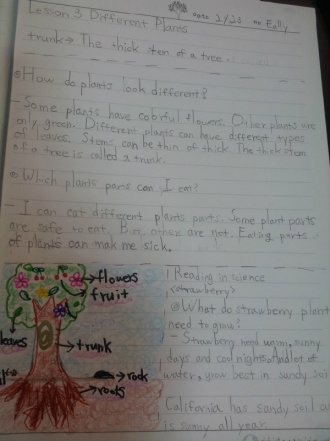 Lesson 3 Different Plants
Date 2/23 no Eally
trunk→ The thick stem of a tree.
How do plants look different?
- Some plants have colorful flowers. Other plants are
only green. Different plants can have different types
of leaves. Stems can be thin of thick. The thick stem
of a tree is called a trunk.
Which plants parts can I eat?
- I can eat different plants parts. Some plant parts
are safe to eat. But, other are not. Eating parts
of plants can make me sick.
→flowers
fruit
leaves
→trunk
→rock
→roots
Reading in science
<strawberry>
What do strawberry plant
need to grow?
- Strawberry need warm, sunny
days and cool nights. And lot of
water, grow best in sandy soil
California has sandy soil a
is sunny all year